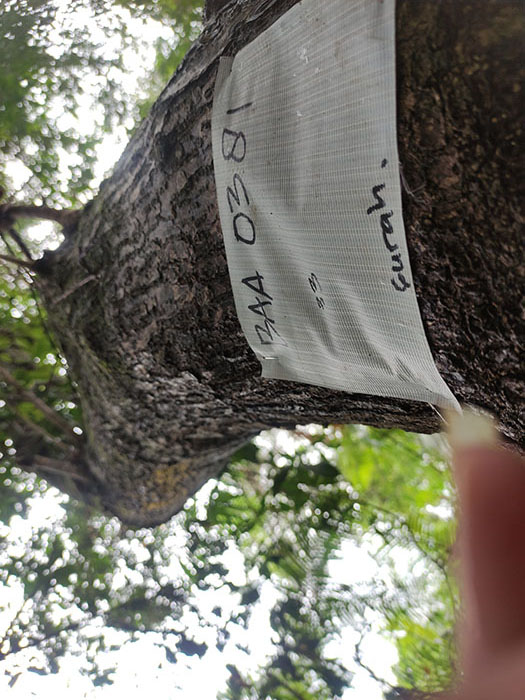 BAA 0381
33
surah.